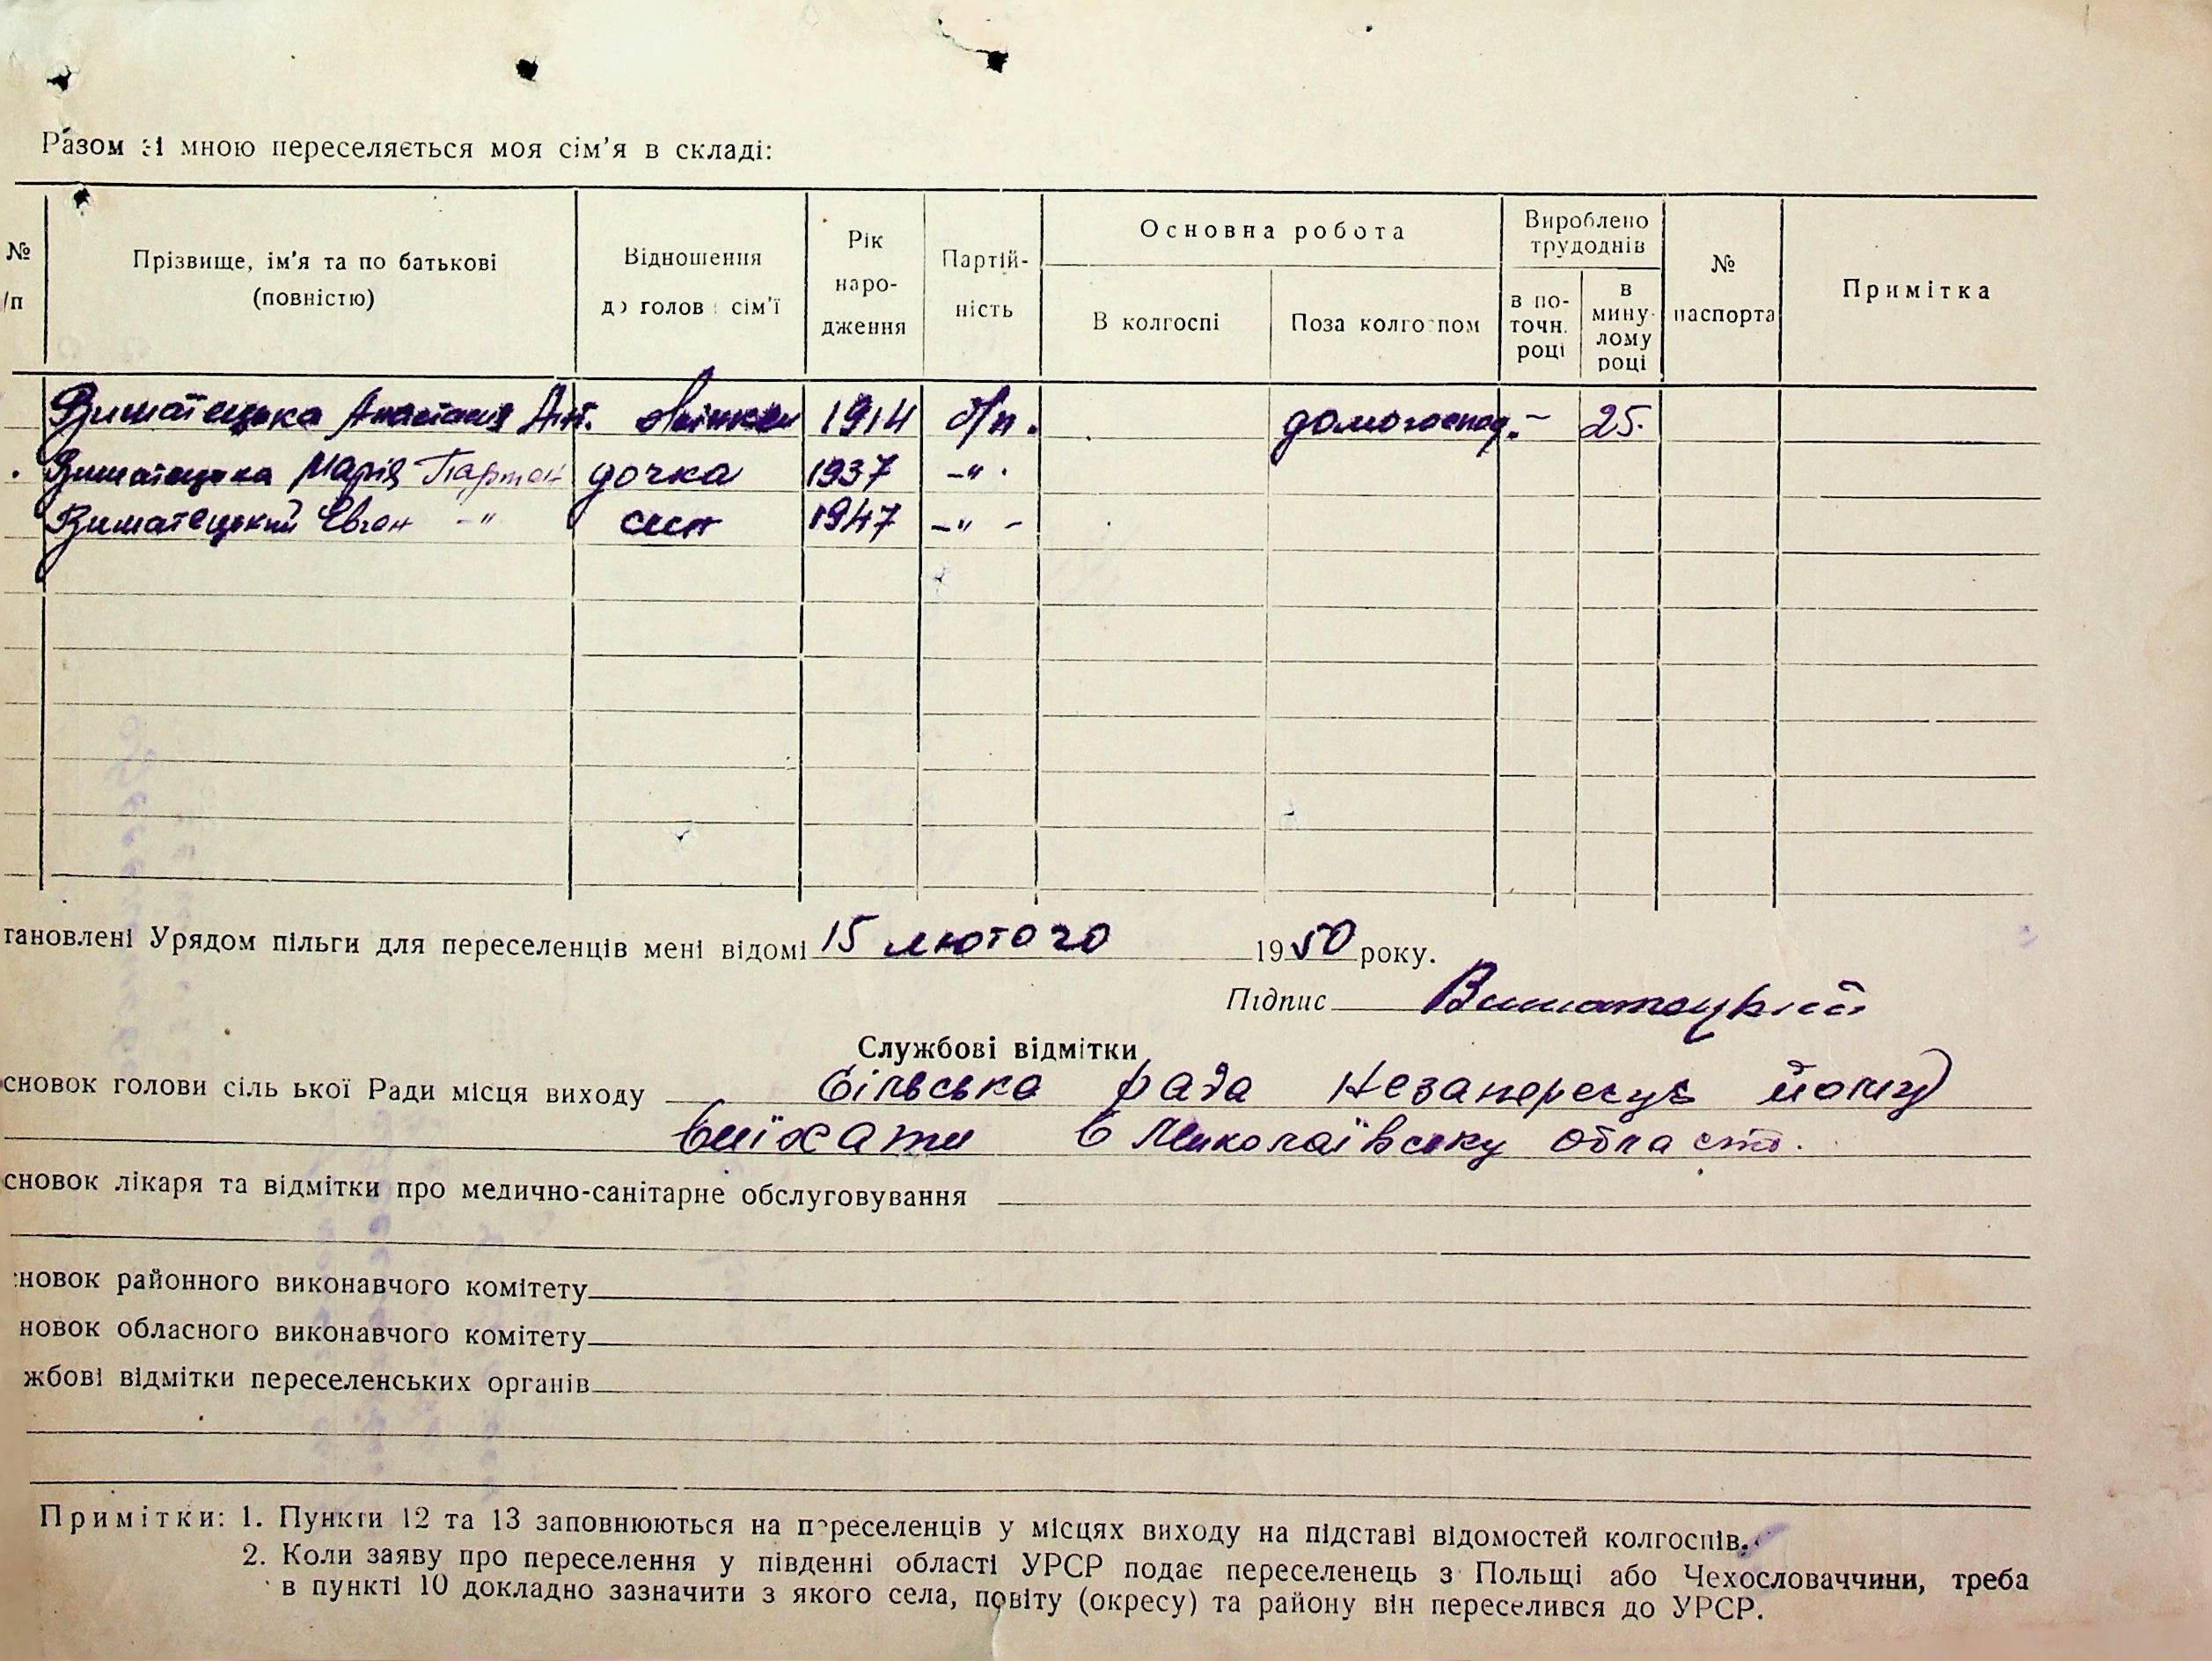 Разом зі мною переселяється моя сім'я в складі:
№ /п
Прізвище, ім'я та по батькові (повністю)
Відношення до голов сім'ї
Рік народження
Партійність
Основна робота
В колгоспі
Поза колгоспом
Вироблено трудоднів
в поточн. році
в минулому році
№ паспорта
Примітка
Вишатецька Анастасія Ант. 1914 б/п. домогоспод. - 25.
Вишатецька Марія Партен дочка 1937 -"-
Вишатецький Євген -"- син 1947 -"-
тановлені Урядом пільги для переселенців мені відомі 15 лютого 1950 року.
Підпис Вишатецький
Службові відмітки
сновок голови сіль ької Ради місця виходу Сільська рада незаперечує йому
виїхати в Миколаївську область.
сновок лікаря та відмітки про медично-санітарне обслуговування
новок районного виконавчого комітету
новок обласного виконавчого комітету
жбові відмітки переселенських органів
Примітки: 1. Пункти 12 та 13 заповнюються на переселенців у місцях виходу на підставі відомостей колгоспів.
2. Коли заяву про переселення у південні області УРСР подає переселенець з Польщі або Чехословаччини, треба
в пункті 10 докладно зазначити з якого села, повіту (окресу) та району він переселився до УРСР.